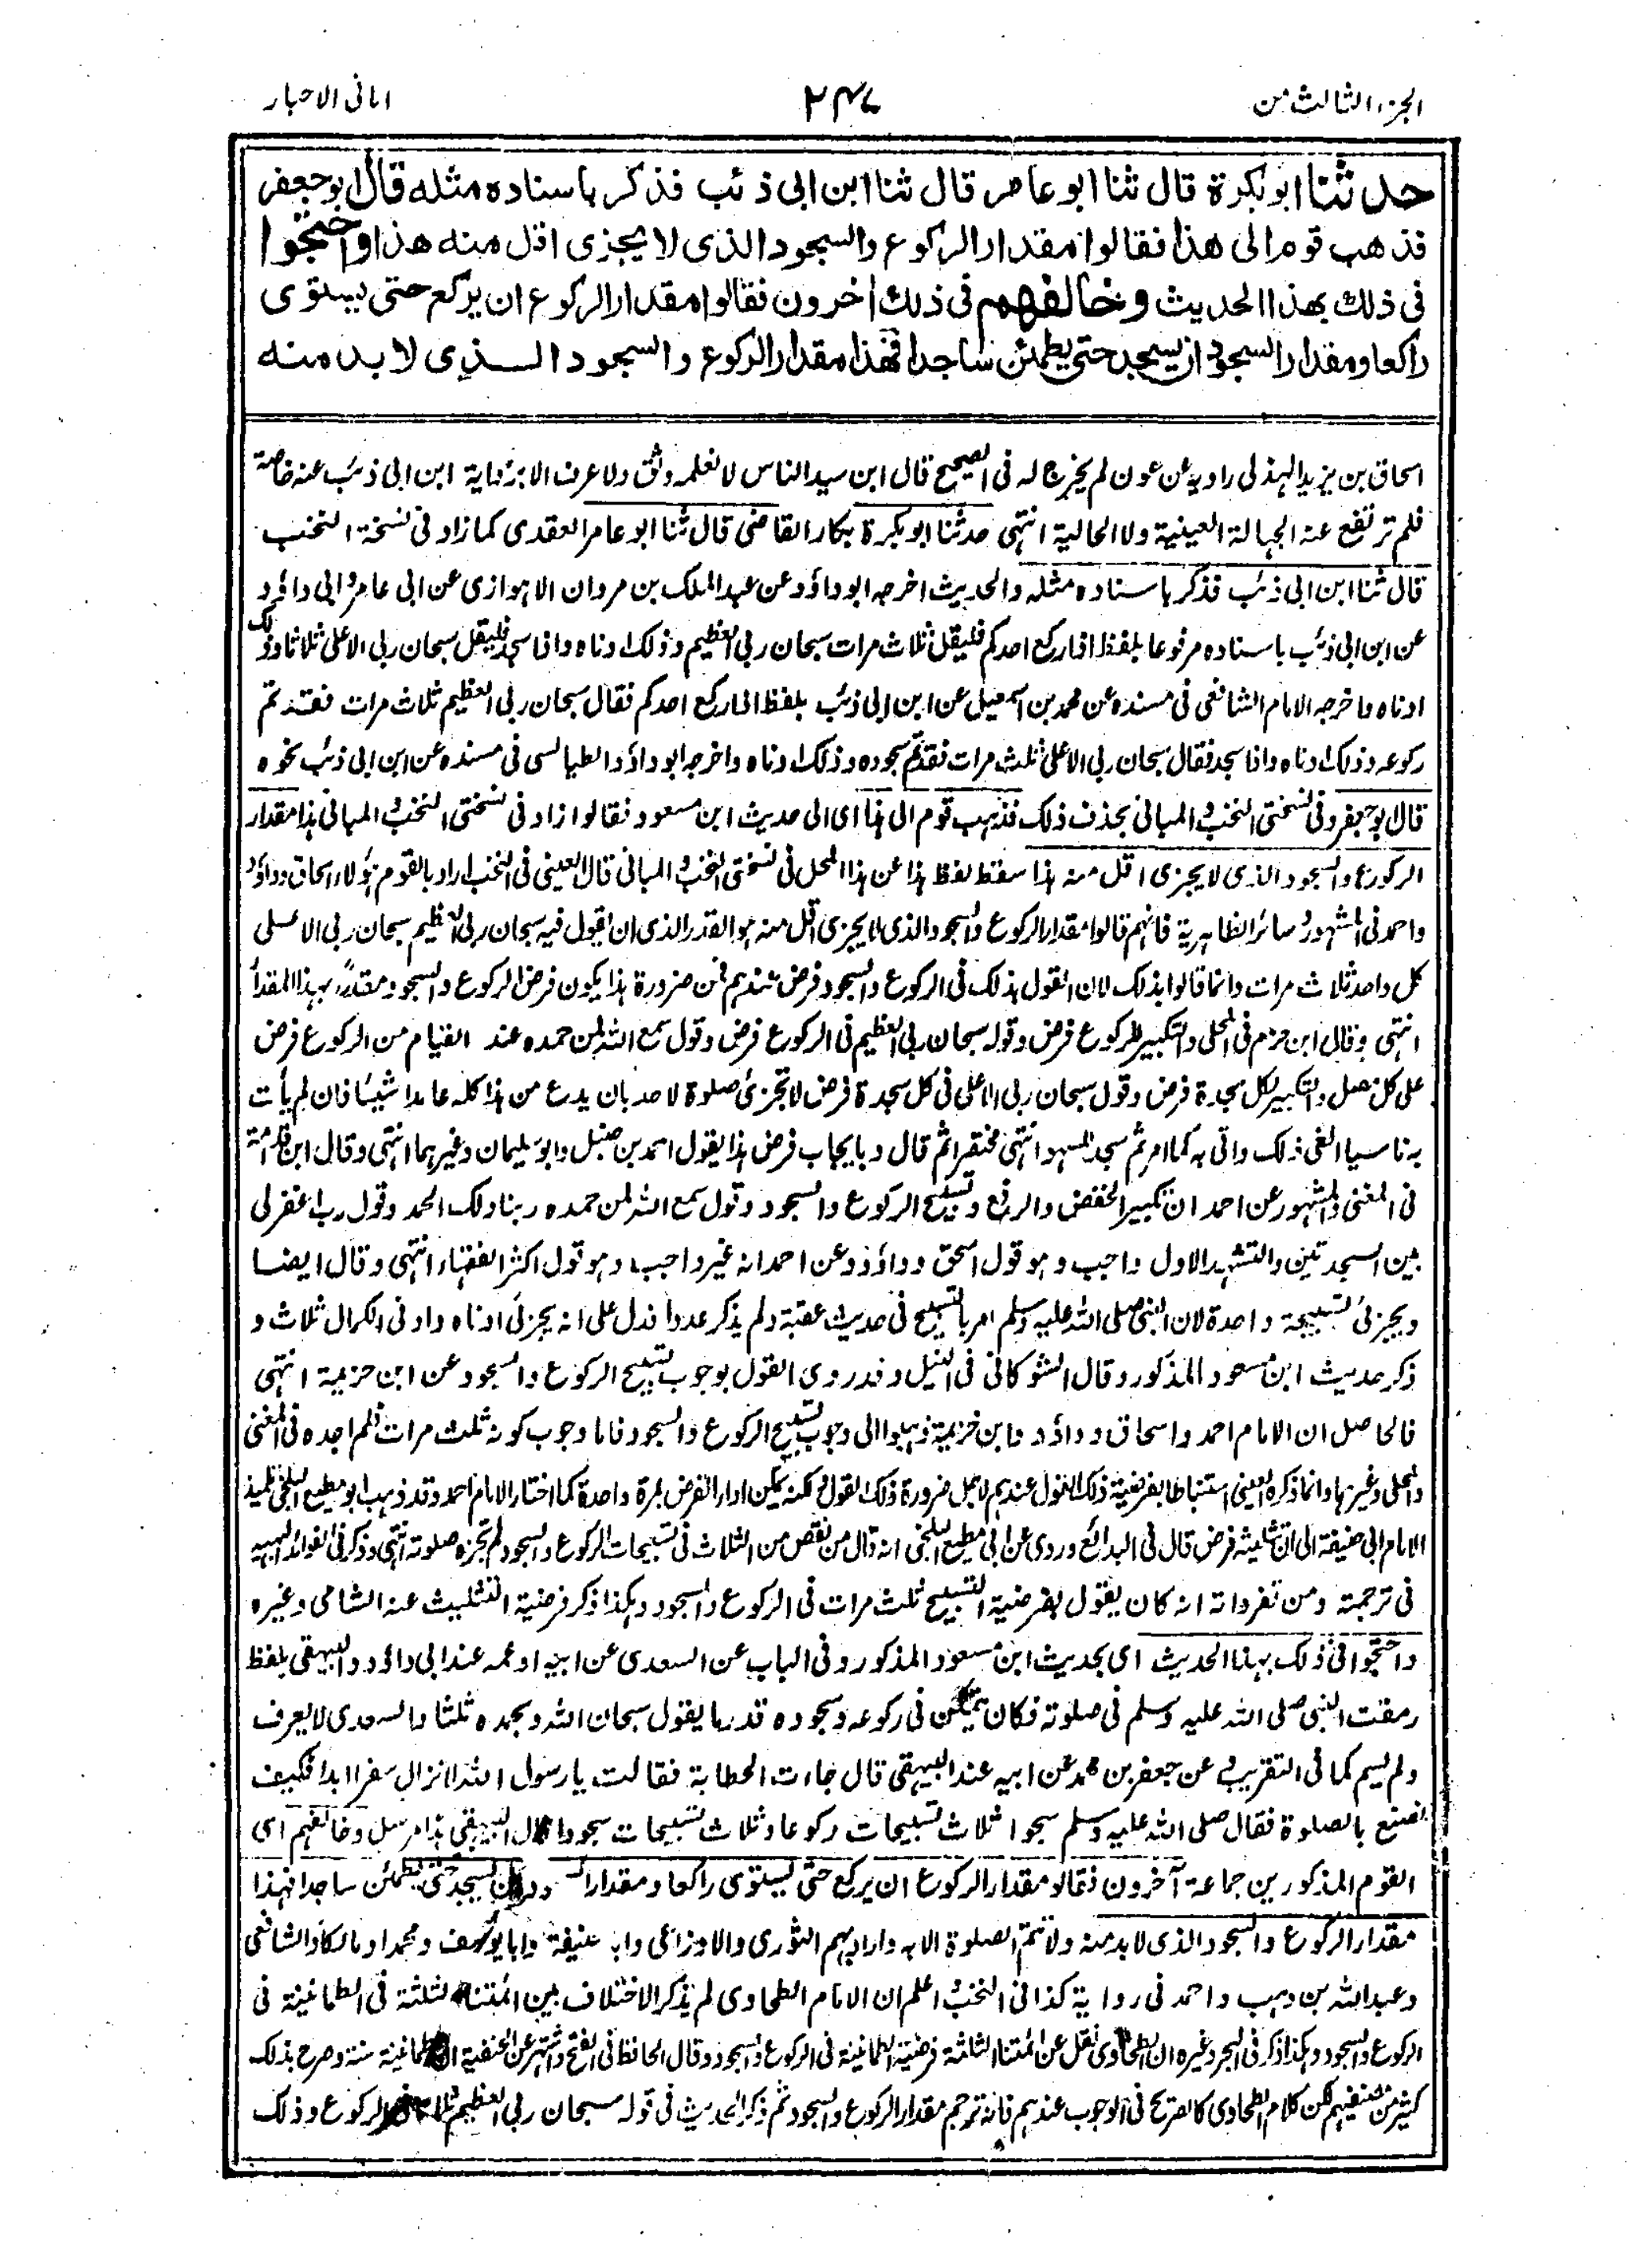 الجزء الثالث من
٢٤٧
اماني الاحبار
حدثنا ابو بكرة قال ثنا ابو عامر قال ثنا ابن ابى ذئب فذكر باسناده مثله قال ابو جعفر
فذهب قوم الى هذا فقالوا مقدار الركوع والسجود الذى لا يجزى اقل منه هذا واحتجوا
فى ذلك بهذا الحديث وخالفهم فى ذلك اخرون فقالوا مقدار الركوع ان يركع حتى يستوى
راكعا ومقدار السجود ان يسجد حتى يطمئن ساجدا فهذا مقدار الركوع والسجود الذى لا بد منه
اسحاق بن يزيد الهذلى راويه عن عون لم يخرج له فى الصحيح قال ابن سيد الناس لا نعلمه وثق ولا عرف الا برواية ابن ابى ذئب عنه خاصة
فلم ترتفع عنه الجهالة العينية ولا الحالية انتهى حدثنا ابو بكرة بكار القاضى قال ثنا ابو عامر العقدى كما زاد فى نسخة النخب
قال ثنا ابن ابى ذئب فذكر باسناده مثله والحديث اخرجه ابو داؤد عن عبد الملك بن مروان الاهوازى عن ابى عامر وابى داؤد
عن ابن ابى ذئب باسناده مرفوعا بلفظ اذا ركع احدكم فليقل ثلاث مرات سبحان ربى العظيم وذلك ادناه واذا سجد فليقل سبحان ربى الاعلى ثلاثا وذلك
ادناه واخرجه الامام الشافعى فى مسنده عن محمد بن اسمعيل عن ابن ابى ذئب بلفظ اذا ركع احدكم فقال سبحان ربى العظيم ثلاث مرات فقد تم
ركوعه وذلك ادناه واذا سجد فقال سبحان ربى الاعلى ثلث مرات فقد تم سجوده وذلك ادناه واخرجه ابو داؤد الطيالسى فى مسنده عن ابن ابى ذئب نحوه
قال ابو جعفر وفى نسختى النخب والمبانى بحذف ذلك فذهب قوم الى هذا اى الى حديث ابن مسعود فقالوا زاد فى نسختى النخب والمبانى هذا مقدار
الركوع والسجود الذى لا يجزى اقل منه هذا سقط لفظ هذا عن هذا المحل فى نسختى النخب والمبانى قال العينى فى النخب اراد بالقوم هؤلاء اسحاق وداؤد
واحمد فى المشهور وسائر الظاهرية فانهم قالوا مقدار الركوع والسجود الذى لا يجزى اقل منه هو القدر الذى ان يقول فيه سبحان ربى العظيم سبحان ربى الاعلى
كل واحد ثلاث مرات وانما قالوا بذلك لان القول بذلك فى الركوع والسجود فرض عندهم فمن ضرورة هذا يكون فرض الركوع والسجود مقدرا بهذا المقدار
انتهى وقال ابن حزم فى المحلى والتكبير للركوع فرض وقوله سبحان ربى العظيم فى الركوع فرض وقول سمع الله لمن حمده عند القيام من الركوع فرض
على كل مصل والتكبير لكل سجدة فرض وقول سبحان ربى الاعلى فى كل سجدة فرض لا تجزئ صلوة لاحد بان يدع من هذا كله عامدا شيئا فان لم يأت
به ناسيا الغى ذلك واتى به كما امر ثم سجد للسهو انتهى مختصرا ثم قال وبايجاب فرض هذا يقول احمد بن حنبل وابو سليمان وغيرهما انتهى وقال ابن قدامة
فى المغنى والمشهور عن احمد ان تكبير الخفض والرفع وتسبيح الركوع والسجود وقول سمع الله لمن حمده ربنا ولك الحمد وقول رب اغفر لى
بين السجدتين والتشهد الاول واجب وهو قول اسحق وداؤد وعن احمد انه غير واجب وهو قول اكثر الفقهاء انتهى وقال ايضا
ويجزئ تسبيحة واحدة لان النبى صلى الله عليه وسلم امر بالتسبيح فى حديث عقبة ولم يذكر عددا فدل على انه يجزئ ادناه وادنى الكمال ثلاث و
ذكر حديث ابن مسعود المذكور وقال الشوكانى فى النيل وقد روى القول بوجوب تسبيح الركوع والسجود عن ابن خزيمة انتهى
فالحاصل ان الامام احمد واسحاق وداؤد وابن خزيمة ذهبوا الى وجوب تسبيح الركوع والسجود فاما وجوب كونه ثلث مرات فلم اجده فى المغنى
والمحلى وغيرهما وانما ذكره العينى استنباطا بفرضية ذلك القول عندهم لاجل ضرورة ذلك القول لكنه يمكن اداء الفرض بمرة واحدة كما اختار الامام احمد وقد ذهب ابو مطيع البلخى تلميذ
الامام ابى حنيفة الى ان تثليثه فرض قال فى البدائع وروى عن ابى مطيع البلخى انه قال من نقص من الثلاث فى تسبيحات الركوع والسجود لم تجزه صلوته انتهى وذكر فى الفوائد البهية
فى ترجمته ومن تفرداته انه كان يقول بفرضية التسبيح ثلث مرات فى الركوع والسجود وهكذا ذكر فرضية التثليث عنه الشامى وغيره
واحتجوا فى ذلك بهذا الحديث اى بحديث ابن مسعود المذكور وفى الباب عن السعدى عن ابيه او عمه عند ابى داؤد والبيهقى بلفظ
رمقت النبى صلى الله عليه وسلم فى صلوته فكان يتمكن فى ركوعه وسجوده قدر ما يقول سبحان الله وبحمده ثلثا والسعدى لا يعرف
ولم يسم كما فى التقريب وعن جعفر بن محمد عن ابيه عند البيهقى قال جاءت الحطابة فقالت يا رسول الله انا لا نزال سفرا ابدا فكيف
نصنع بالصلوة فقال صلى الله عليه وسلم سبحوا ثلاث تسبيحات ركوعا وثلاث تسبيحات سجودا قال البيهقى هذا مرسل وخالفهم اى
القوم المذكورين جماعة آخرون فقالوا مقدار الركوع ان يركع حتى يستوى راكعا ومقدار السجود ان يسجد حتى يطمئن ساجدا فهذا
مقدار الركوع والسجود الذى لا بد منه ولا تتم الصلوة الا به واراد بهم الثورى والاوزاعى وابا حنيفة وابا يوسف ومحمدا ومالكا والشافعى
وعبد الله بن وهب واحمد فى رواية كذا فى النخب اعلم ان الامام الطحاوى لم يذكر الاختلاف بين ائمتنا الثلثة فى الطمانينة فى
الركوع والسجود وهكذا ذكر فى البحر وغيره ان الطحاوى نقل عن ائمتنا الثلاثة فرضية الطمانينة فى الركوع والسجود وقال الحافظ فى الفتح واشتهر عن الحنفية ان الطمانينة سنة وصرح بذلك
كثير من مصنفيهم لكن كلام الطحاوى كالصريح فى الوجوب عندهم فانه ترجم مقدار الركوع والسجود ثم ذكر الحديث فى قوله سبحان ربى العظيم ثلاثا فى الركوع وذلك